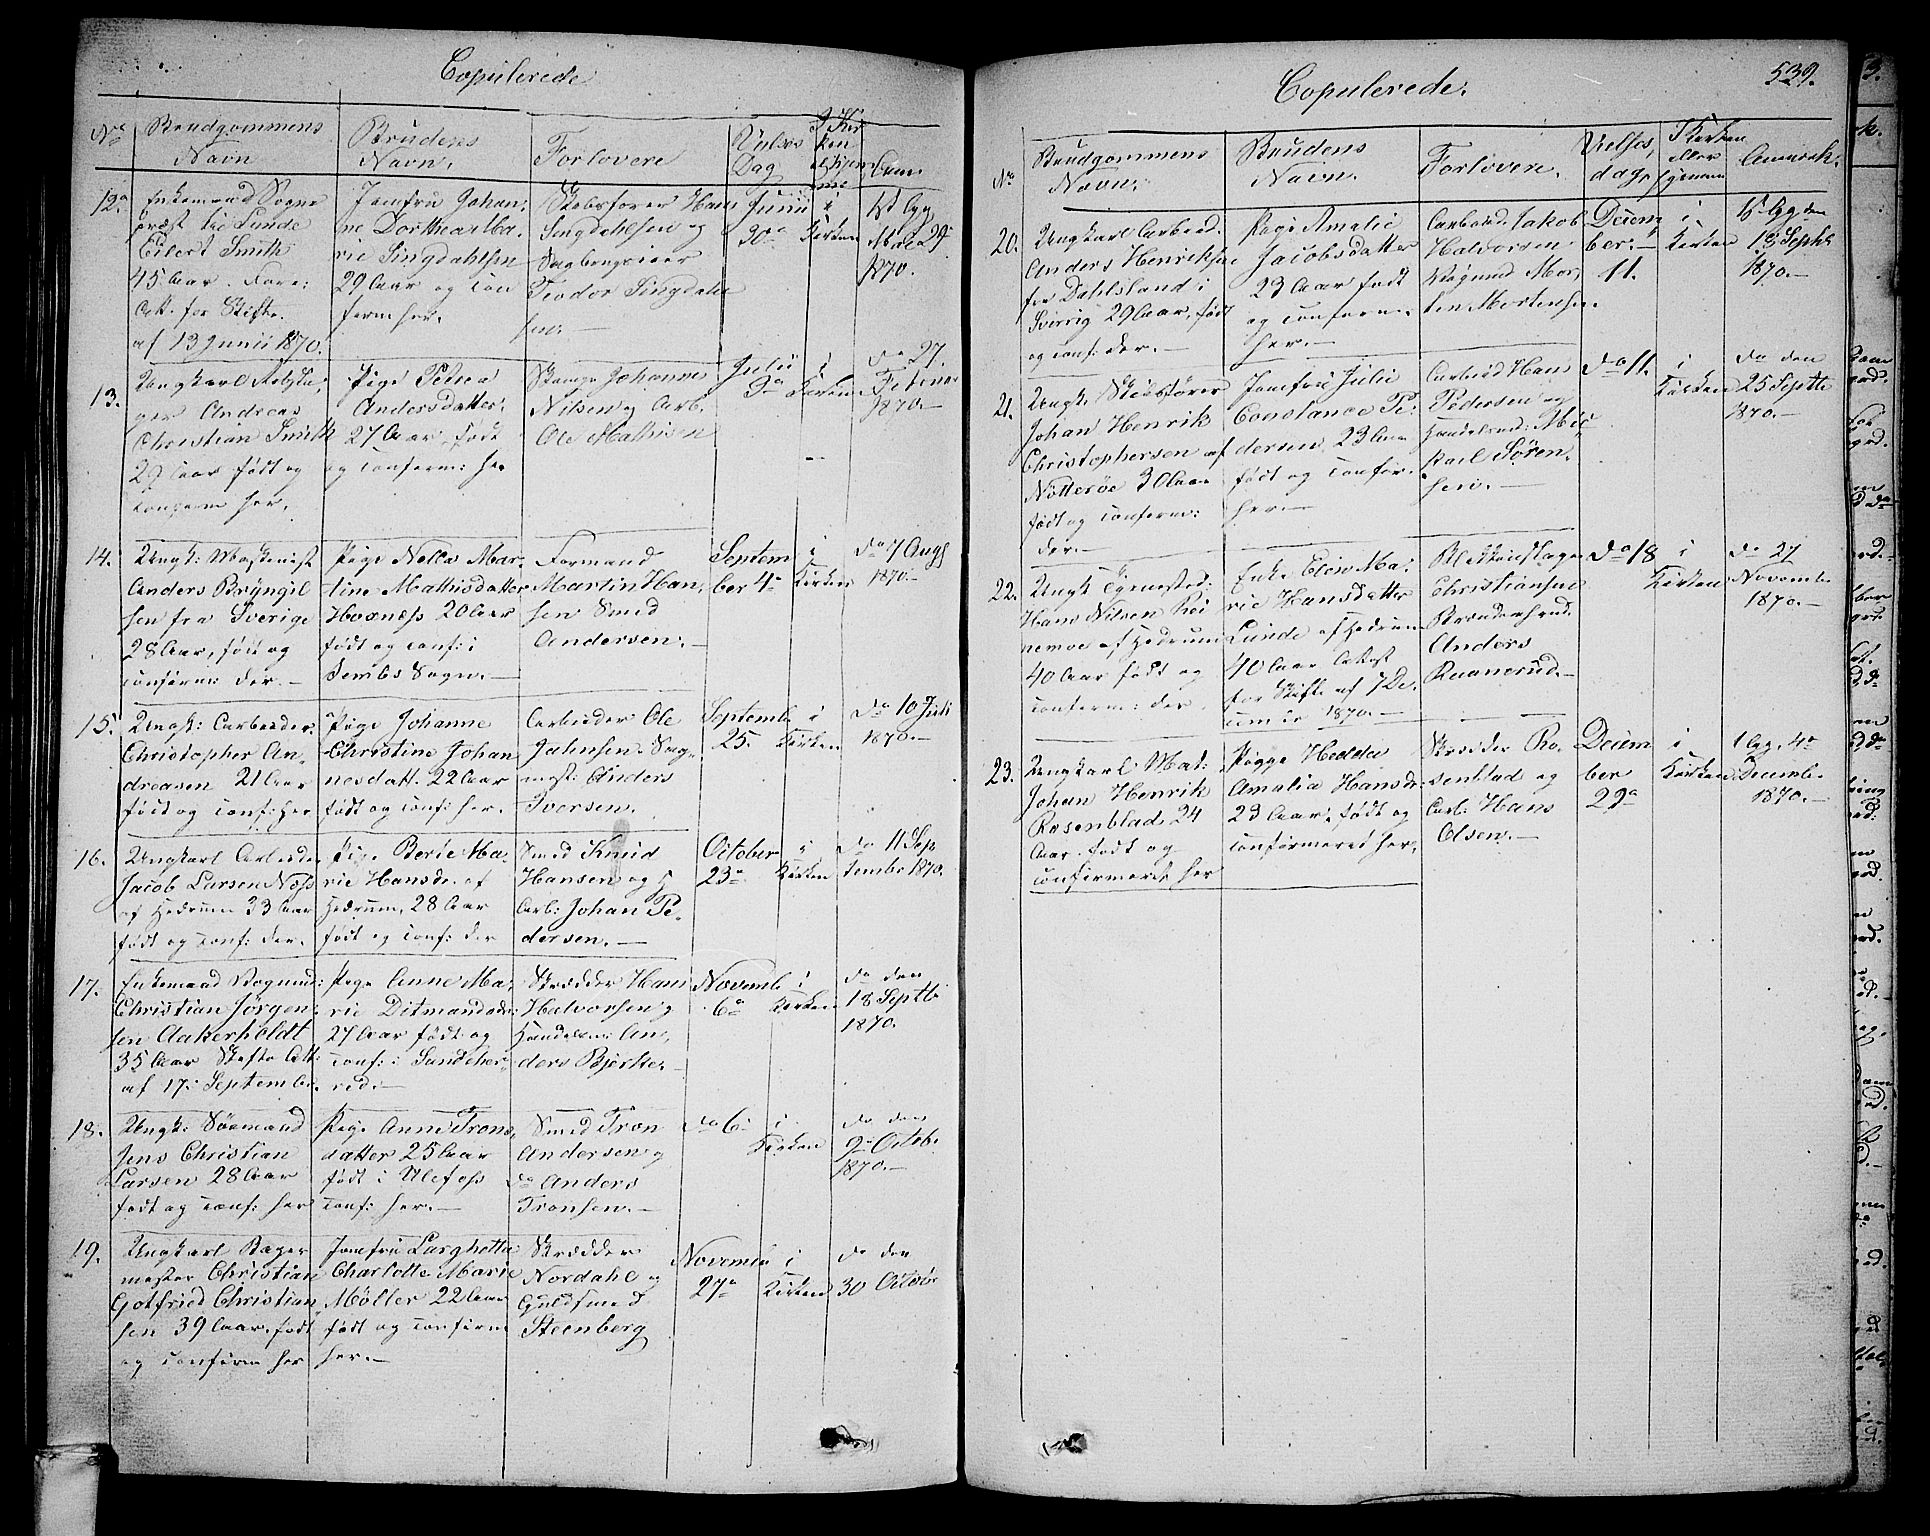 Copulerede
No
Brudgommens
Navn
Brudens
Navn.
Forlovere
Vielses
Dag
I Kir
ken
12.
Enkemand Sogne
præst til Lunde
Eilert Smith
45 Aar.
Att. for Skifte.
af 13 Junii 1870.
Jomfru Johan:
ne Dorthea Ma.
rie Lingdahlsen
29 Aar og con
ferm her.
Skibsfører Hans
Lingdahlsen og
Teodor Lingdahl
sen.—
Junii
30
i
Kirken
1st lyg
24
1870.
13.
Ungkarl
ger Andreas
Christian Smith
29 Aar født og
conferm her.
Pige Petrea
Andersdatter.
27 Aar, født
og conferm: her
Johannes
Nilsen og Arb.
Ole Mathisen
Julii
3
i
Kirken
do 27.
Februar
1870.—
14.
Ungk: Maskinist
Anders Bryngil
sen fra Sverige
28 Aar, født og
conferm: der.—
Pige Nella Mar-
tine Mathisdatter
20 Aar
født og conf: i
Sembs Sogn.—
Formand
Martin Han,
sen Smed
Andersen.—
Septem
ber 4
i
Kirken
do 7 Aug
1870.—
15.
Ungk: Arbeider
Christopher An,
dreasen 21 Aar
født og conf: her
Pige Johanne
Christine Johan
nesdatt. 22 Aar
født og conf: her.
Arbeider Ole
Jalensen. Sag-
mest: Anders
Iversen.
Septemb
25.
i
Kirken
do 10 Juli
1870.—
16.
Ungkarl Arbeider
Jacob Larsen Næss
af Hedrum 33 Aar
født og conf: der.
Pige Berte Ma,
rie Hansdr. af
Hedrum, 28 Aar
født og conf: der
Smed Knud
Hansen og
Arb: Johan Pe,
dersen.—
October
23
i
Kirken
do 11 Sep
tember 1870.
17.
Enkemand Vognm:
Christian Jørgen,
sen Aakerholdt
35 Aar Skifte Att:
af 17: September.
Pige Anne Ma,
rie Ditmandsdr:
27 Aar født og
conf: i Sandeher,
red.—
Skrædder Hans
Halvorsen og
Handelsm: An,
ders Bjerke.—
Novemb
6
i
Kirken
do den
18 Septb
1870.
18.
Ungk: Sømand
Jens Christian
Larsen 28 Aar
født og conf: her
Pige Anne Trons,
datter 25 Aar
født i Ulefoss
conf: her.—
Smed Tron
Andersen og
do Anders
Tronsen.—
do 6
i
Kirken
do den
9 Octob.
1870.—
19.
Ungkarl Bager
mester Christian
Gotfried Christian
sen 39 Aar. født
og conferm her
Jomfru Larghetta
Charlotte Marie
Møller 22 Aar
født og conferm
her.—
Skrædder
Nordahl og
Guldsmed
Steenberg
Novemb
27
i
Kirken
do den
30 Octbr
Copulerede.
539.
No
Brudgommens
Navn.
Brudens
Navn.
Forlovere.
Vielses,
dag,
I Kirken
eller
hjemme
Anmærk.
20.
Ungkarl Arbeid.
Anders Henriksen
fra Dahlsland i
Sverrig 29 Aar, født
og conf: der.—
Pige Amalie
Jacobsdatter
23 Aar født
og conferm.
her.—
Arbeid. Jakob
Halvorsen
Vognmd Mor,
ten Mortensen.
Decem
ber.—
11.
i
Kirken
15 lyg den
18 Septb
1870.—
21.
Ungk. Skibsfører
Johan Henrik
Christophersen af
Nøtterøe 30 Aar
født og conferm:
der.—
Jomfru Julie
Constance Pe,
dersen 23 Aar
født og confer.
her.—
Arbeid Hans
Pedersen og
Handelsmd: Mic
kael Søren,
sen.—
do 11.
i
Kirken
do den
25 Septb
1870.—
22.
Ungk Tjenested:
Hans Nilsen
af Hedrum
40 Aar født og
conferm: der.
Enke Elen Ma,
rie Hansdatter
Lunde af Hedrum
40 Aar Attest
for Skifte af 7 De,
cember 1870.—
Blikkenslager
Christiansen
Anders
Raanerud.—
do 18
i
Kirken
do 27
November
1870.—
23.
Ungkarl Mat:
Johan Henrik
Rosenblad, 24
Aar. født og
confermeret her
Pige Hedda
Amalia Hansdr
23 Aar, født og
confermeret her.
Skrædder Ro,
senblad og
Arb: Hans
Olsen.—
Decem
ber
29
i
Kirken
1 lyg. 4
Decemb.
1870.—